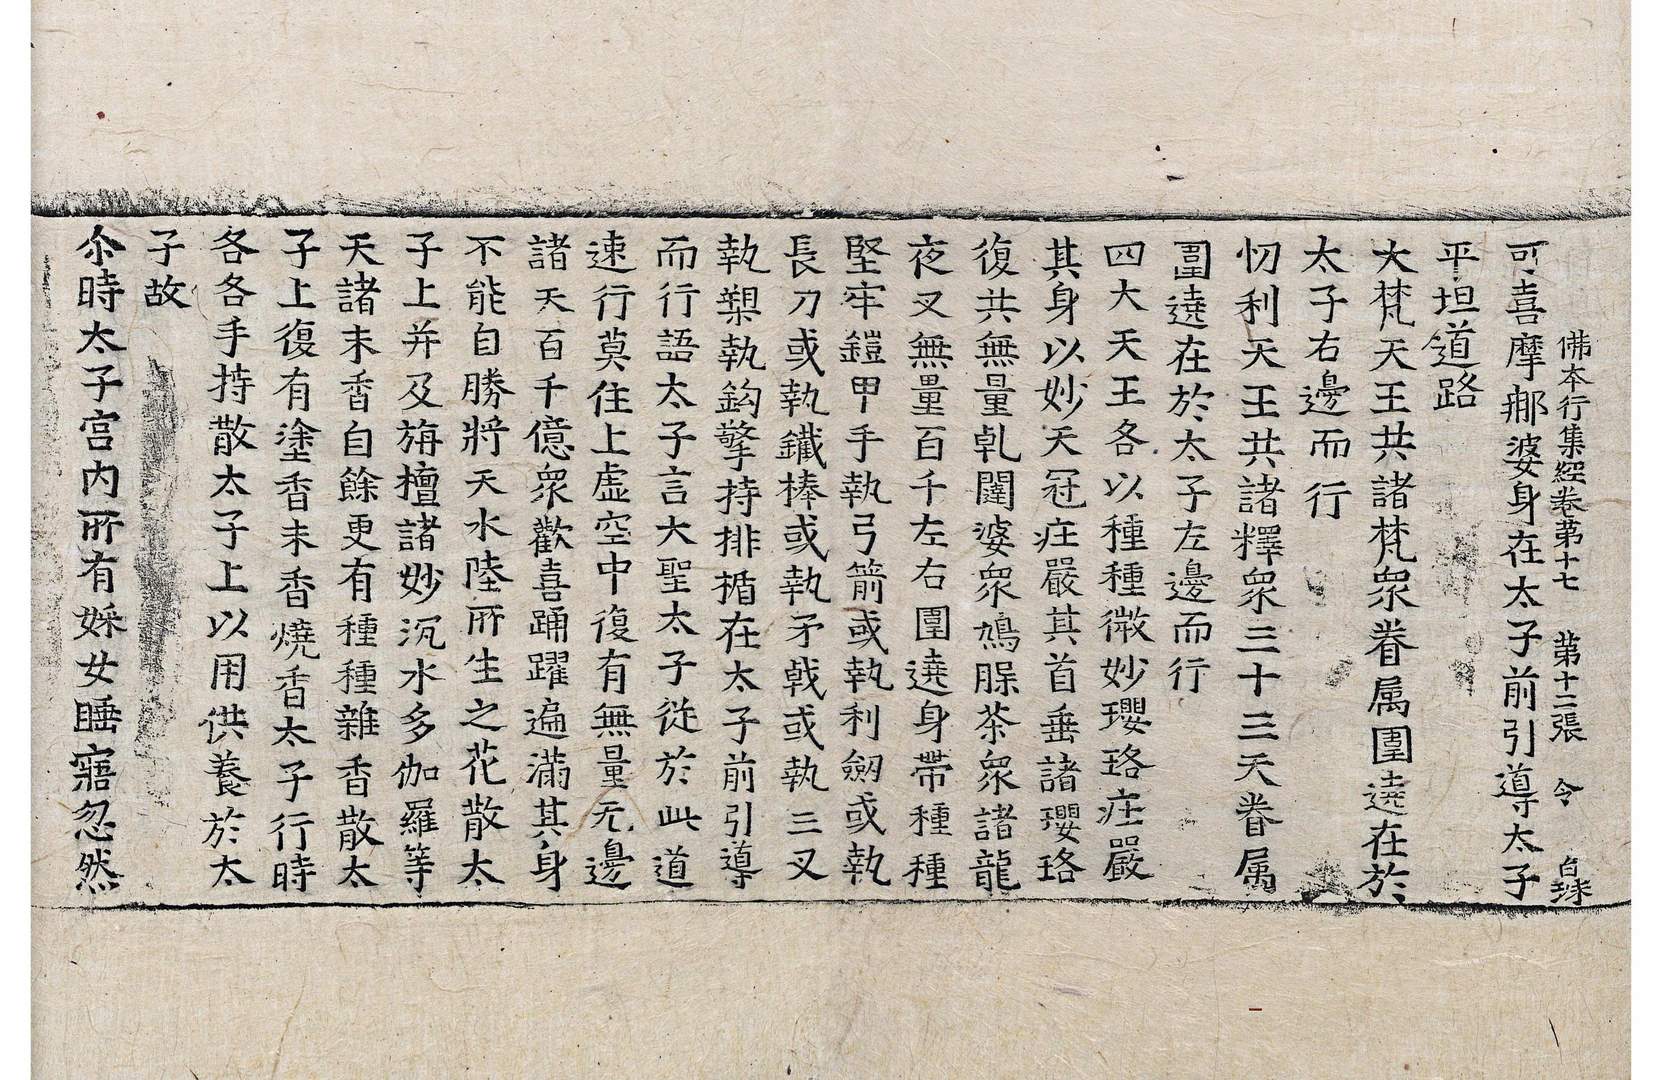 佛本行集經卷第十七 第十二張 令
可喜摩那婆身在太子前引導太子
平坦道路
大梵天王共諸梵衆眷属圍遶在於
太子右邊而行
忉利天王共諸釋衆三十三天眷属
圍遶在於太子左邊而行
四大天王各以種種微妙瓔珞庄嚴
其身以妙天冠庄嚴其首垂諸瓔珞
復共無量乹闥婆衆鳩脵茶衆諸龍
夜叉無量百千左右圍遶身帶種種
堅牢鎧甲手執弓箭或執利劒或執
長刀或執鐵棒或執矛戟或執三叉
執槊執鈎擎持排楯在太子前引導
而行語太子言大聖太子從於此道
速行莫住上虛空中復有無量无邊
諸天百千億衆歡喜踊躍遍滿其身
不能自勝將天水陸所生之花散太
子上并及旃檀諸妙沉水多伽羅等
天諸末香自餘更有種種雜香散太
子上復有塗香末香燒香太子行時
各各手持散太子上以用供養於太
子故
尒時太子宮內所有婇女睡寤忽然